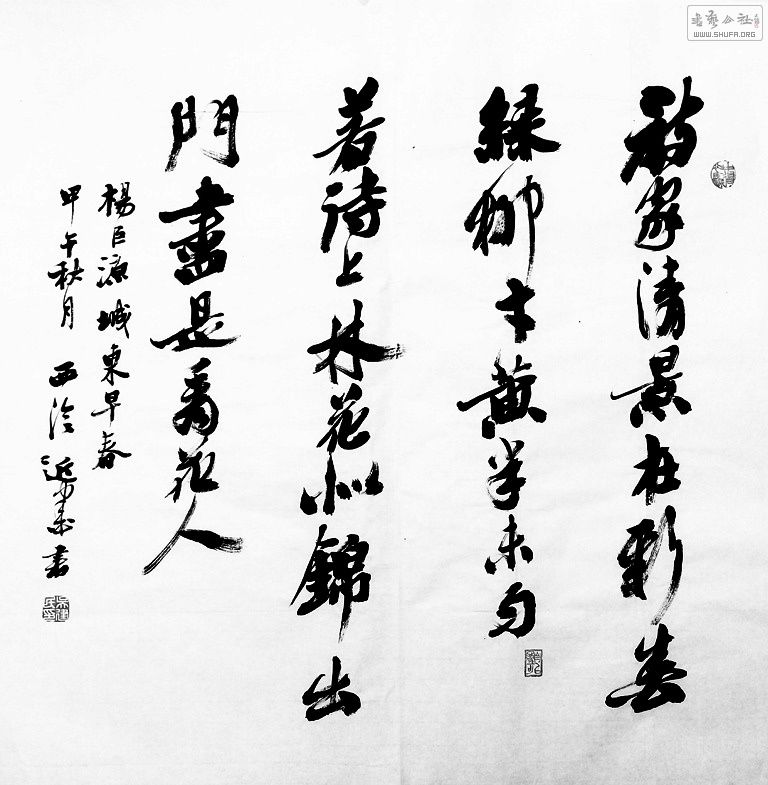 書藝公社
WWW.SHUFA.ORG
詩家清景在新春
綠柳才黄半未匀
若待上林花似錦出
門盡是看花人
楊巨源城東早春
甲午秋月西泠書